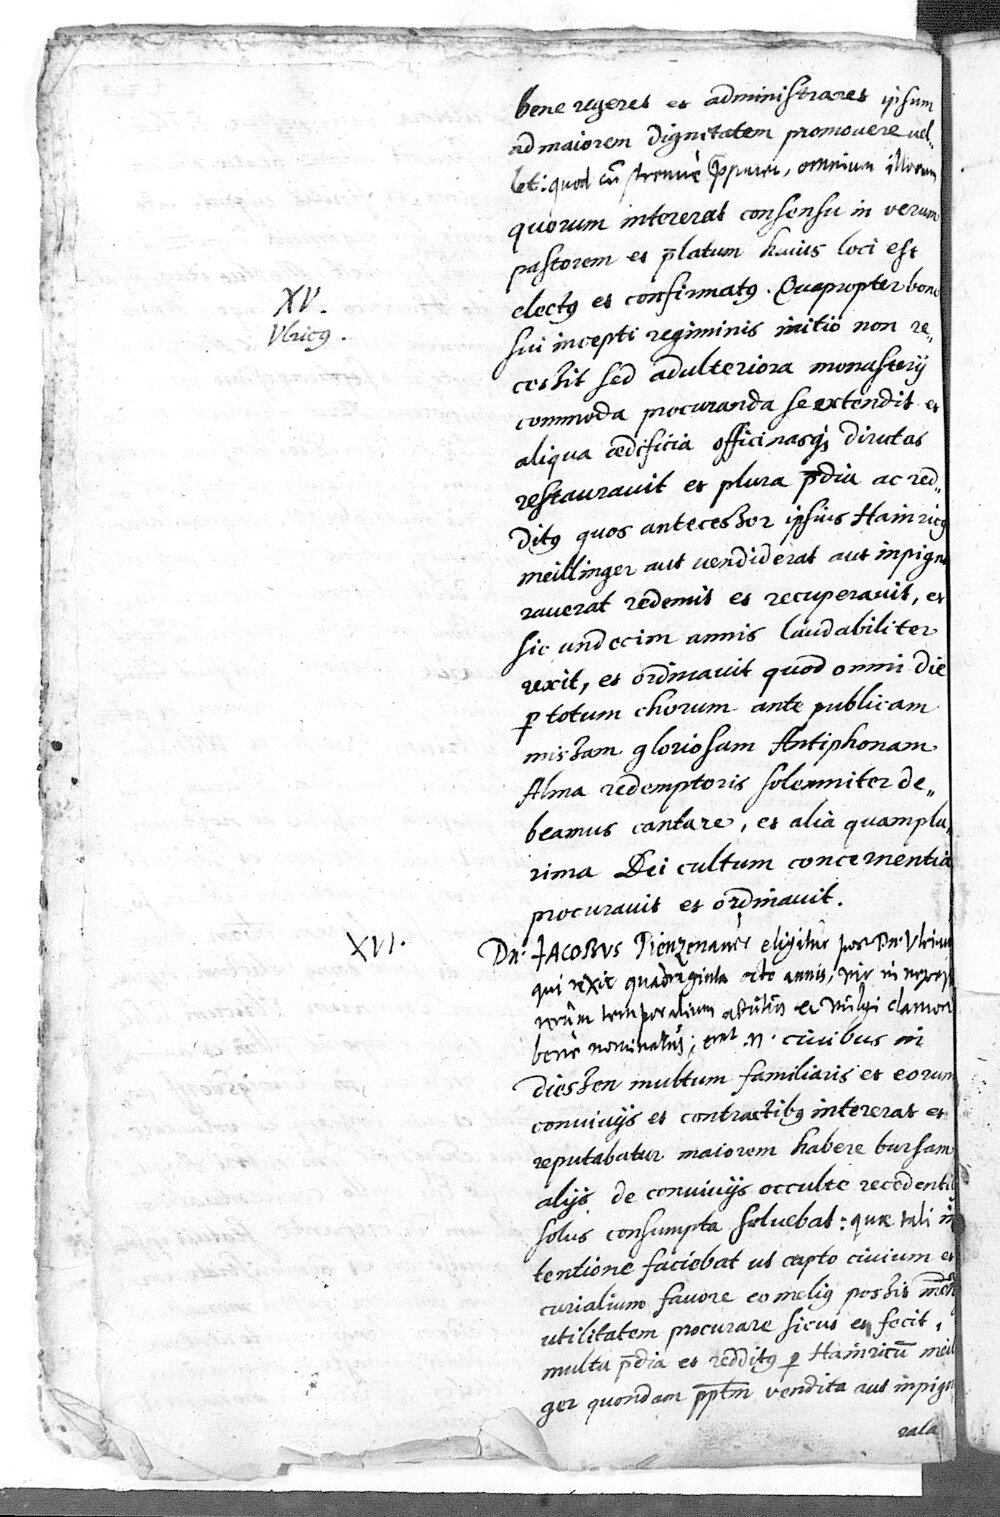 bene regeret et administraret ipsum
ad maiorem dignitatem promovere vel„
let: quod cū strenuè omnium illorum
quorum intererat consensu in verum
pastorem et p̄latum huius loci est
electꝰ et confirmatꝰ. Quapropter bono
sui incepti regiminis initio non re„
ceszit sed ad ulteriora monasterij
commoda procuranda se extendit et
aliqua ædificia officinasqꝫ dirutas
restauravit et plura p̄dia ac red„
ditꝰ quos anteceszor ipsius Hainricꝰ
meillinger aut vendiderat aut inpigno
raverat redemit et recuperavit, et
sic undecim annis laudabiliter
rexit, et ordinavit quod omni die
ꝑ totum chorum ante publicam
miszam gloriosam Antiphonam
Alma redemptoris solemniter de„
beamus cantare, et alia quamplu„
rima Dei cultum concernentia
procuravit et ordinavit.
XV.
Vlricꝰ.
XVI.
Dn: JACOBVS Pienzenauer eligitur post Dn: Vlricum
qui rexit quadraginta octo annis, vir in
rerum temporalium astutus et vulgi clamore
bene nominatus; erat .n. civibus in
Dieszen multum familiaris et eorum
convivijs et contractibꝰ intererat et
reputabatur maiorem habere bursam
alijs de convivijs occulte recedentibꝰ
solus consumpta solvebat: quæ tali in
tentione faciebat ut capto civium et
curialium favore eo meliꝰ poszit
utilitatem procurare sicut et fecit,
multa p̄dia et redditꝰ ꝑ Hainricū meil
ger quondam vendita aut inpigno
rata